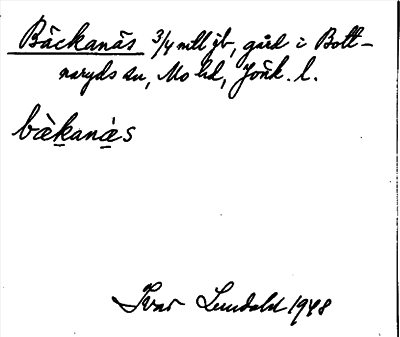 Bäckanäs 3/4 mtl jb, gård i Bott-
naryds sn, Mo hd, Jönk. l.
bàkanàs
Ivar Lundahl 1948